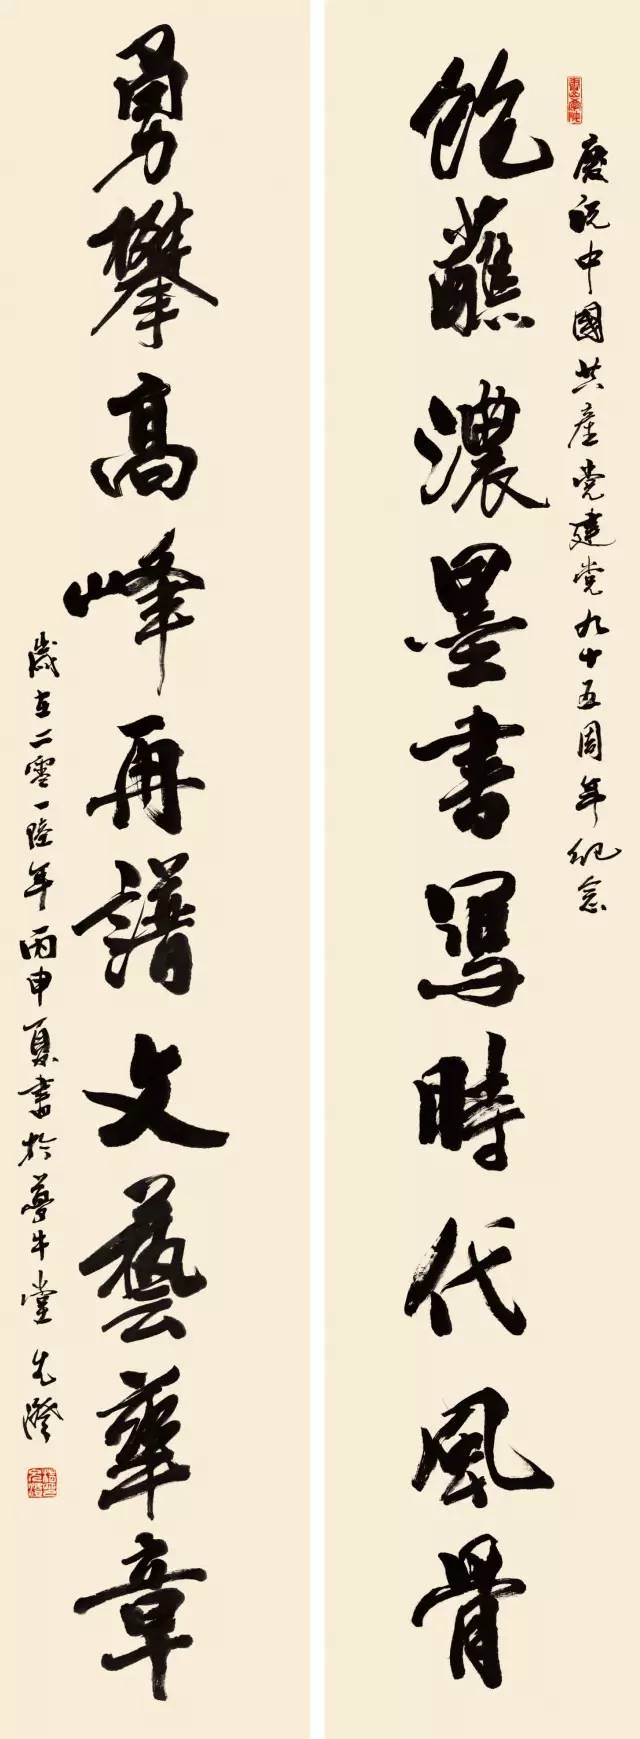 慶祝中國共產党建党九十五周年紀念
飽蘸濃墨書寫時代風骨
勇攀高峰再譜文藝華章
歲在二零一陸年丙申夏書於夢牛堂